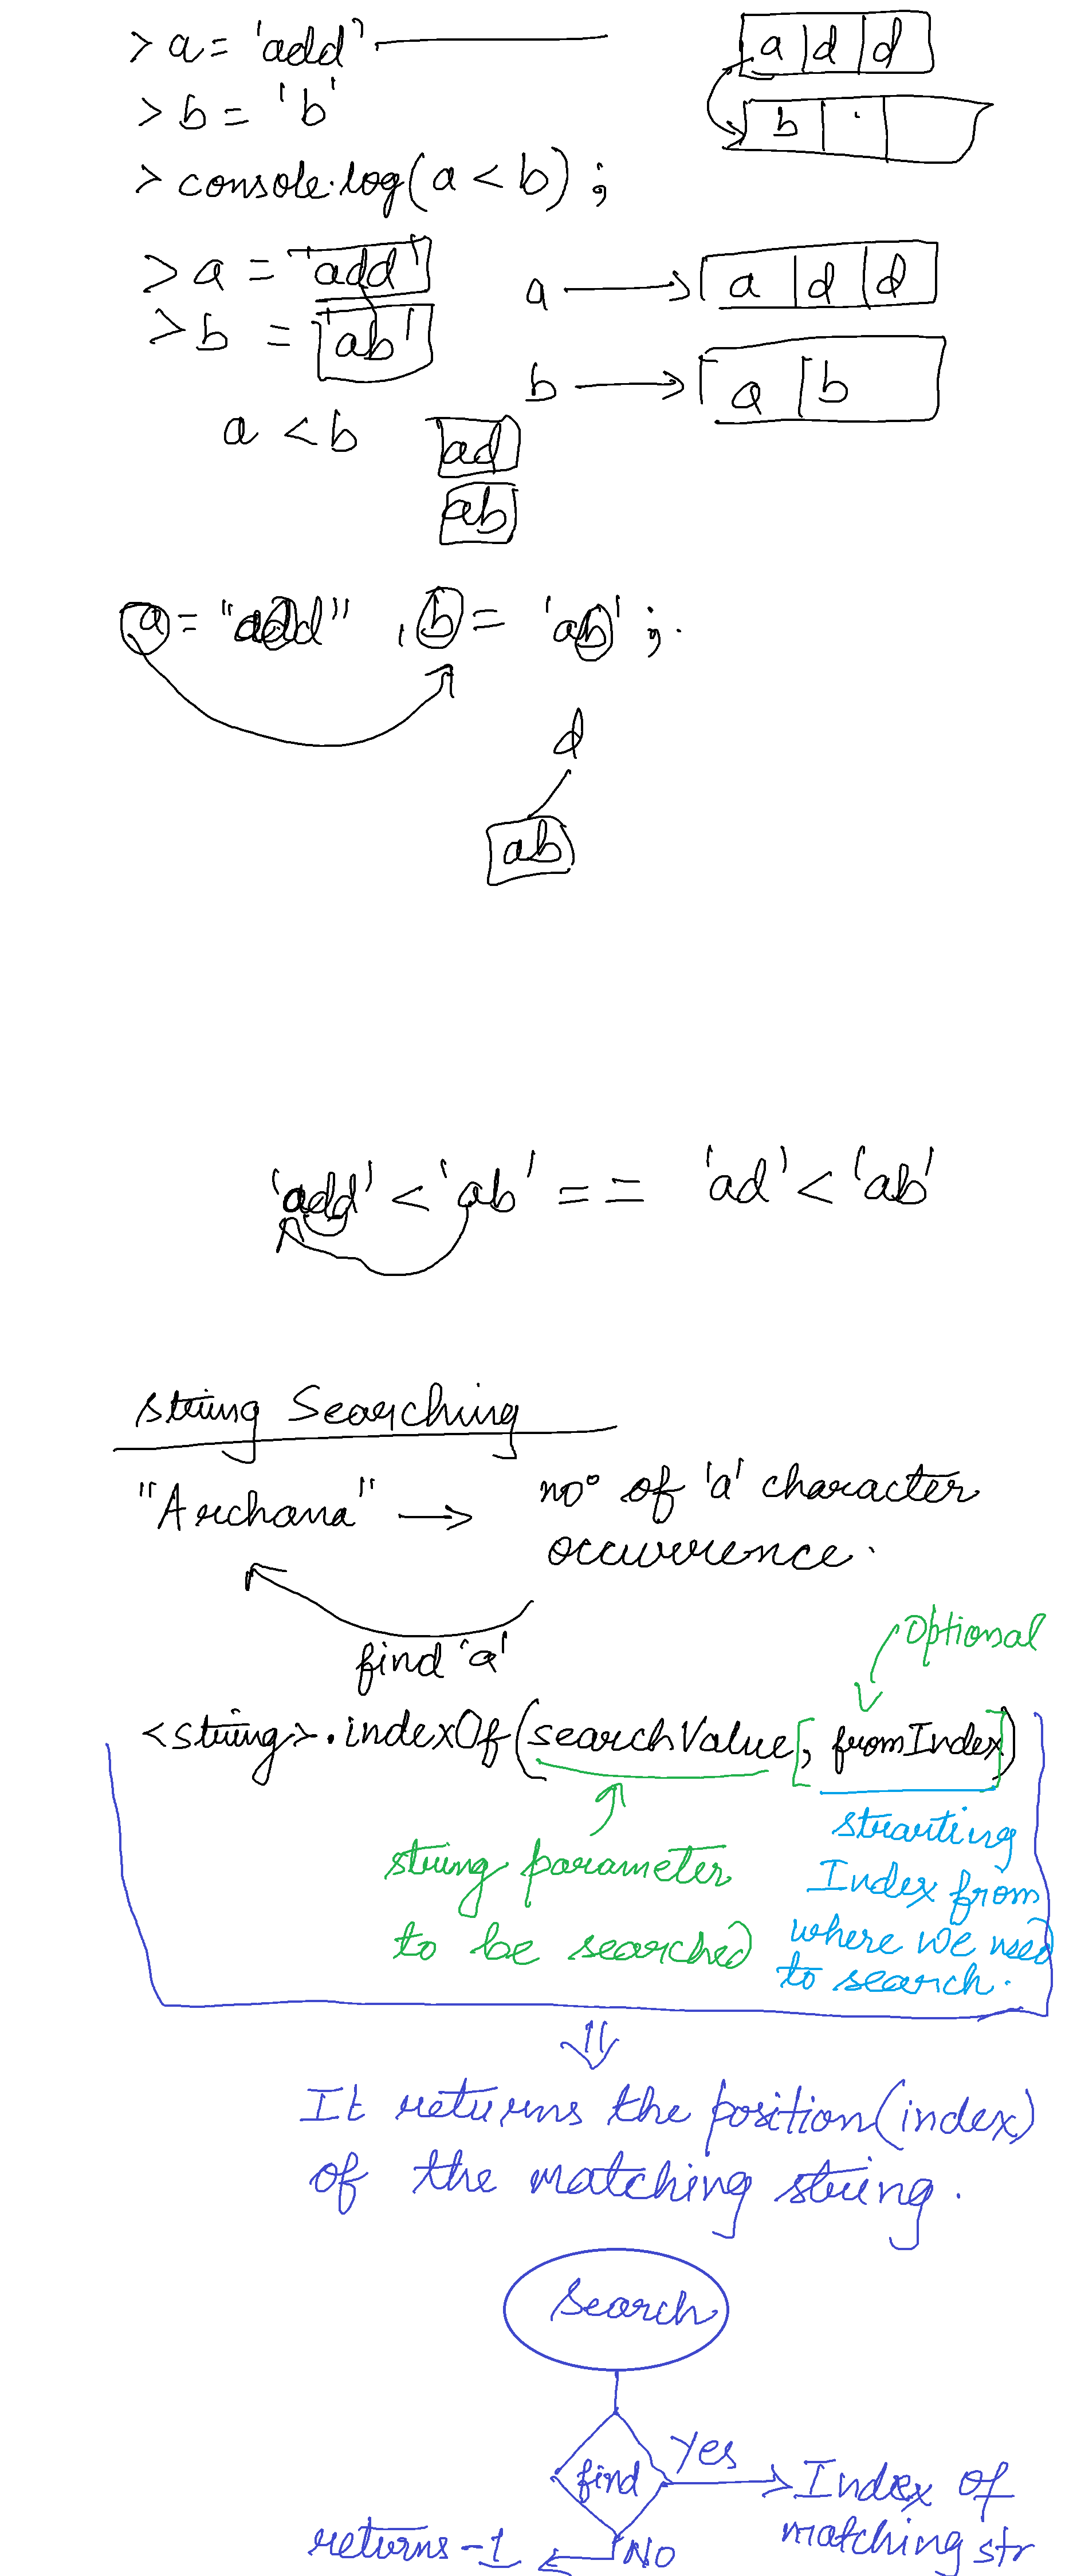 > a = 'add' a d d
> b = 'b' b
> console.log(a < b) ;
> a = 'add' a → a d d
> b = 'ab' b → a b
a < b ad
ab
a = "add" , b = 'ab' ;
d
ab
'add' < 'ab' == 'ad' < 'ab'
String Searching
"Archana" → no° of 'a' character
occurrence.
find 'a'
Optional
<string>.indexOf(searchValue[, fromIndex])
string parameter
to be searched
starting
Index from
where we need
to search.
It returns the position(index)
of the matching string.
Search
find
Yes
Index of
matching str
returns -1
NO